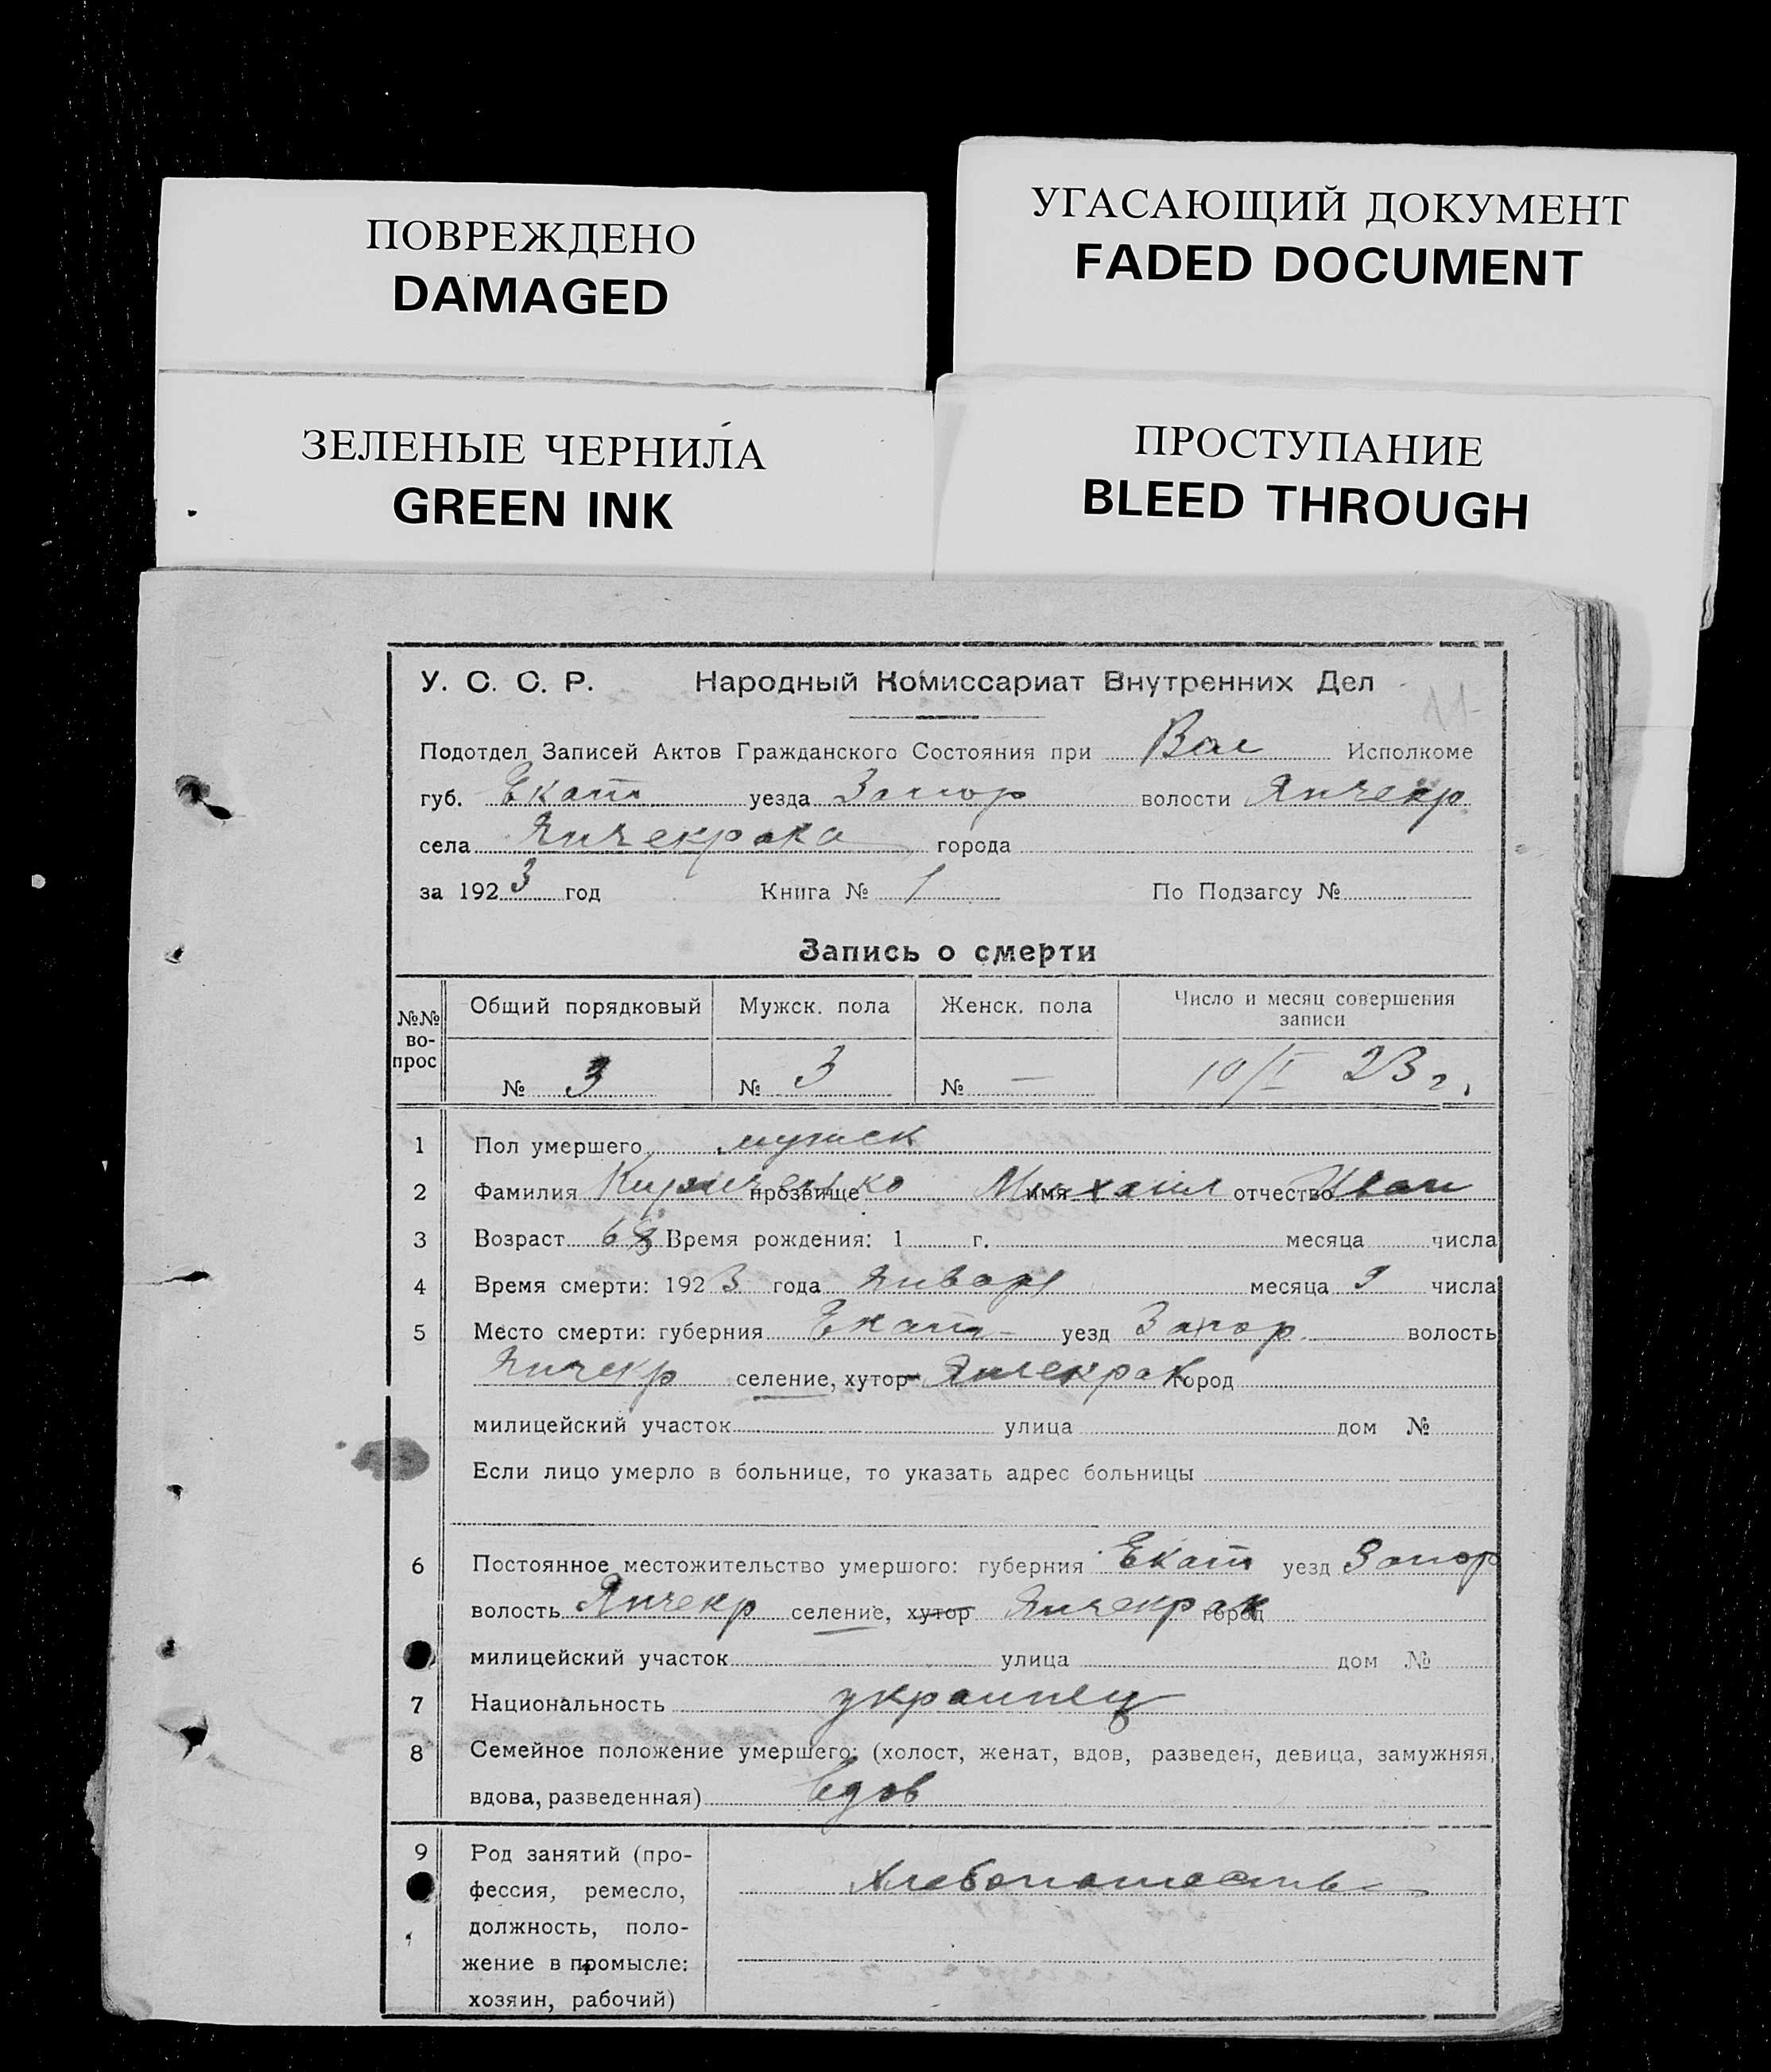 ПОВРЕЖДЕНО
DAMAGED
УГАСАЮЩИЙ ДОКУМЕНТ
FADED DOCUMENT
ЗЕЛЕНЫЕ ЧЕРНИЛА
GREEN INK
ПРОСТУПАНИЕ
BLEED THROUGH
У. С. С. Р. Народный Комиссариат Внутренних Дел
Подотдел Записей Актов Гражданского Состояния при Вол Исполкоме
губ. Екат уезда Запор волости Янчекр
села Янчекрака города
за 1923 год Книга № 1 По Подзагсу №
Запись о смерти
№№ во-прос Общий порядковый Мужск. пола Женск. пола Число и месяц совершения записи
№ 3 № 3 № — 10/I 23 г.
1 Пол умершего мужск
2 Фамилия Кириченко прозвище имя Михаил отчество Иван
3 Возраст 68 Время рождения: 1 г. месяца числа
4 Время смерти: 1923 года Январ месяца 9 числа
5 Место смерти: губерния Екат уезд Запор. волость
Янчекр селение, хутор Янчекрак город
милицейский участок улица дом №
Если лицо умерло в больнице, то указать адрес больницы
6 Постоянное местожительство умершого: губерния Екат уезд Запор
волость Янчекр селение, хутор Янчекрак город
милицейский участок улица дом №
7 Национальность украинец
8 Семейное положение умершего: (холост, женат, вдов, разведен, девица, замужняя,
вдова, разведенная) вдов
9 Род занятий (про-
фессия, ремесло, Хлебопашество
должность, поло-
жение в промысле:
хозяин, рабочий)